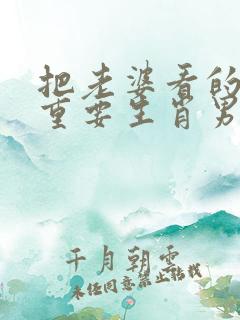 把老婆看的
重要生肖男
千月朝雲
未经同意禁止转载